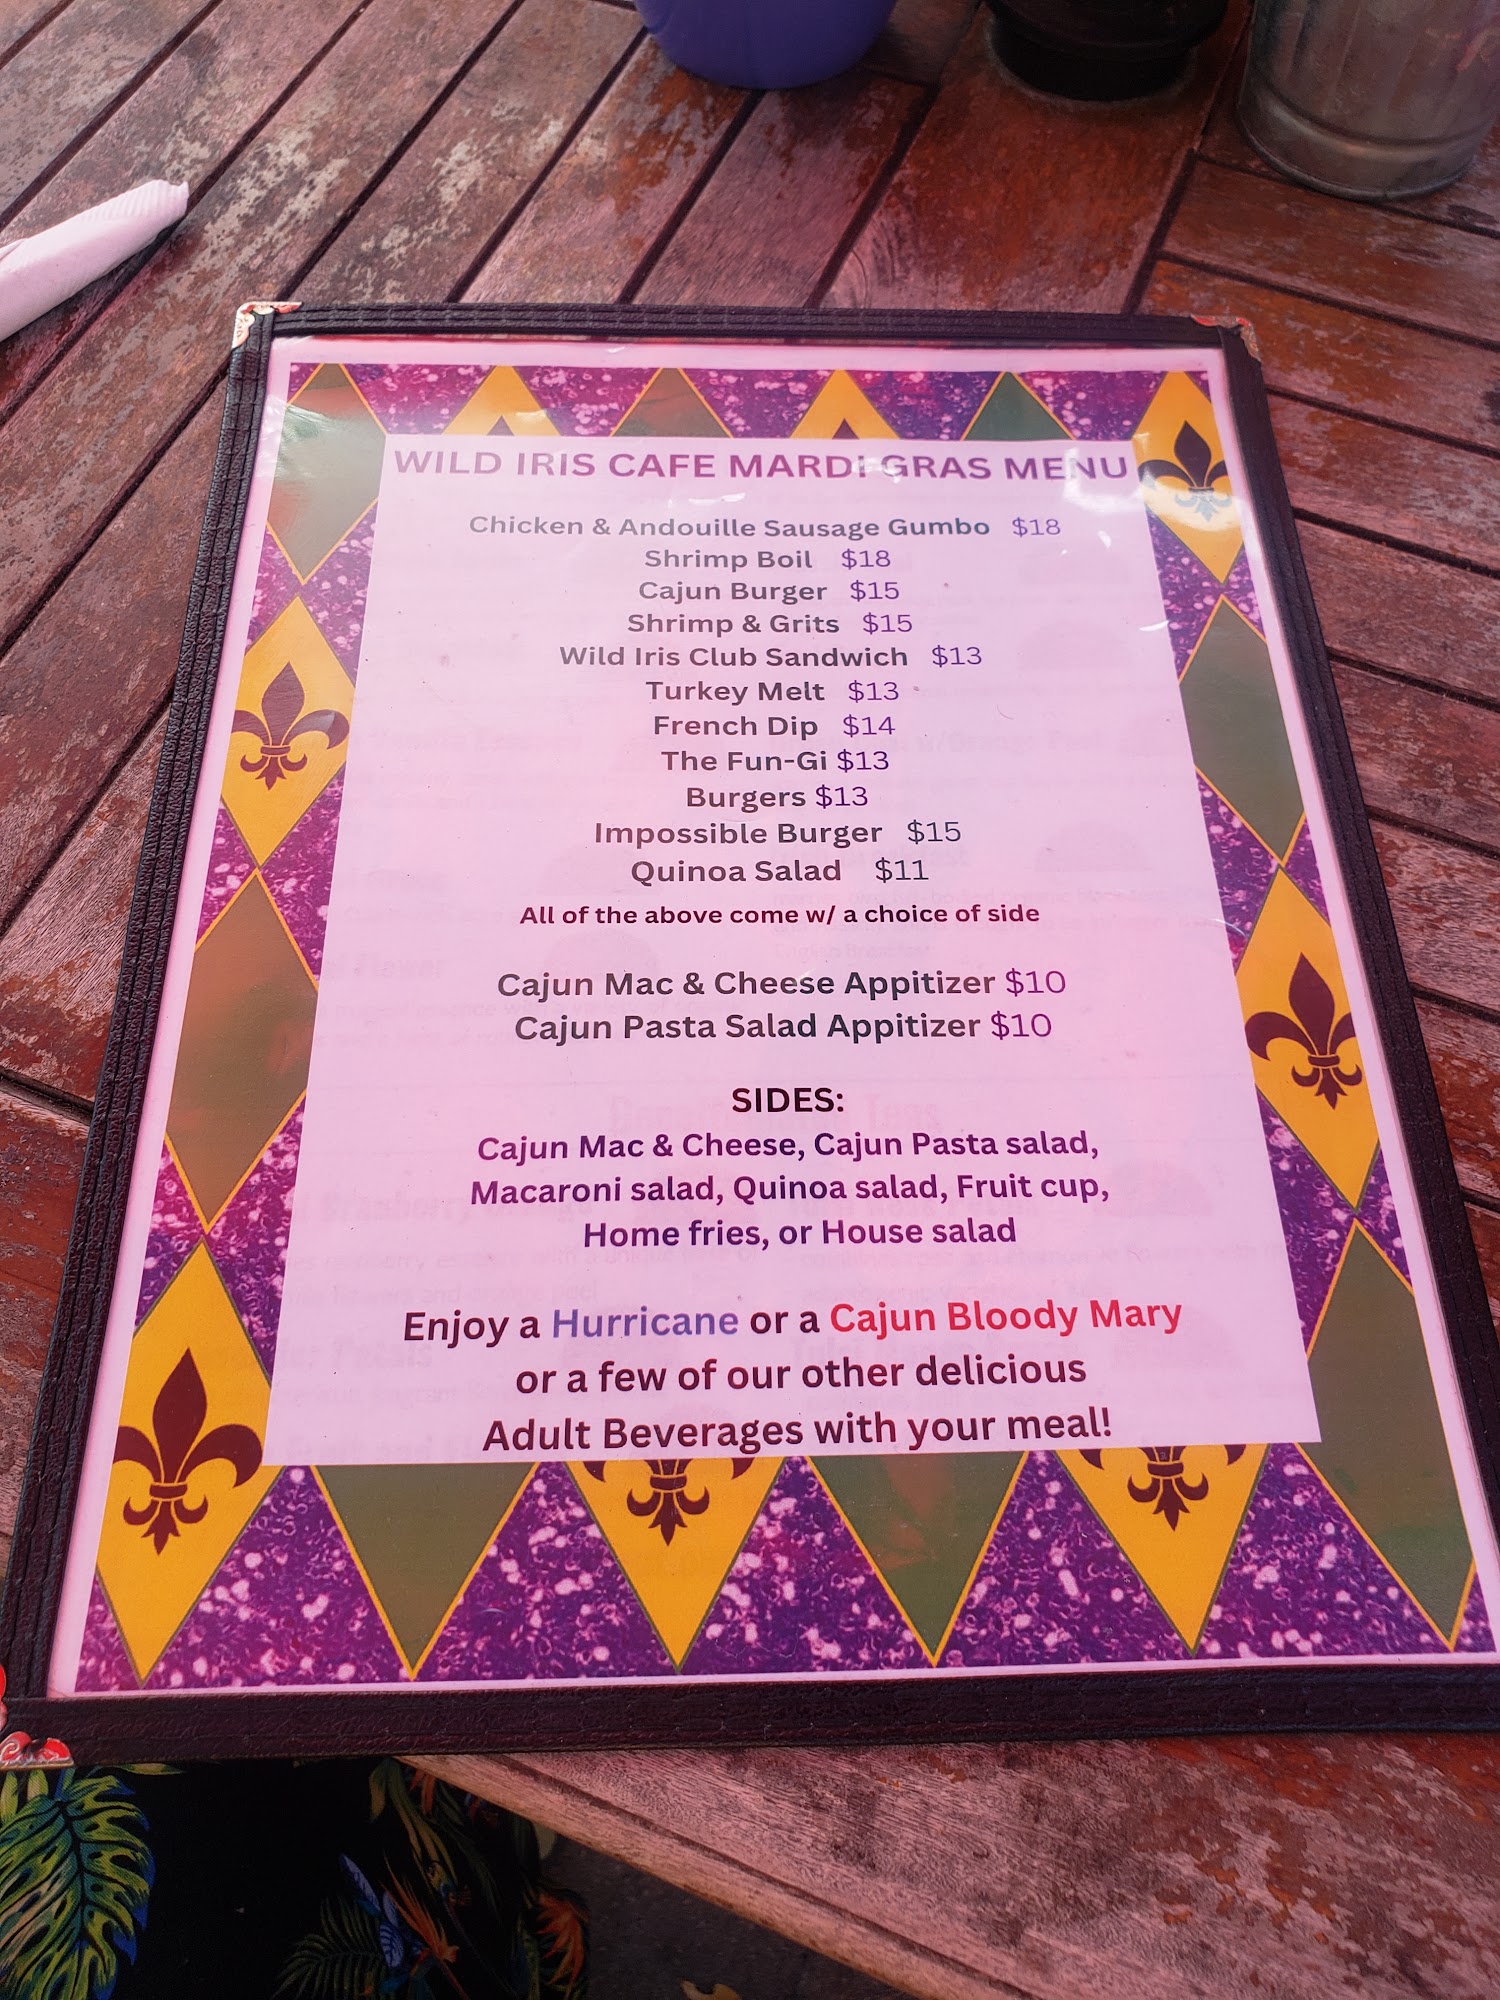 WILD IRIS CAFE MARDI GRAS MENU
Chicken & Andouille Sausage Gumbo $18
Shrimp Boil $18
Cajun Burger $15
Shrimp & Grits $15
Wild Iris Club Sandwich $13
Turkey Melt $13
French Dip $14
The Fun-Gi $13
Burgers $13
Impossible Burger $15
Quinoa Salad $11
All of the above come w/ a choice of side
Cajun Mac & Cheese Appitizer $10
Cajun Pasta Salad Appitizer $10
SIDES:
Cajun Mac & Cheese, Cajun Pasta salad,
Macaroni salad, Quinoa salad, Fruit cup,
Home fries, or House salad
Enjoy a Hurricane or a Cajun Bloody Mary
or a few of our other delicious
Adult Beverages with your meal!